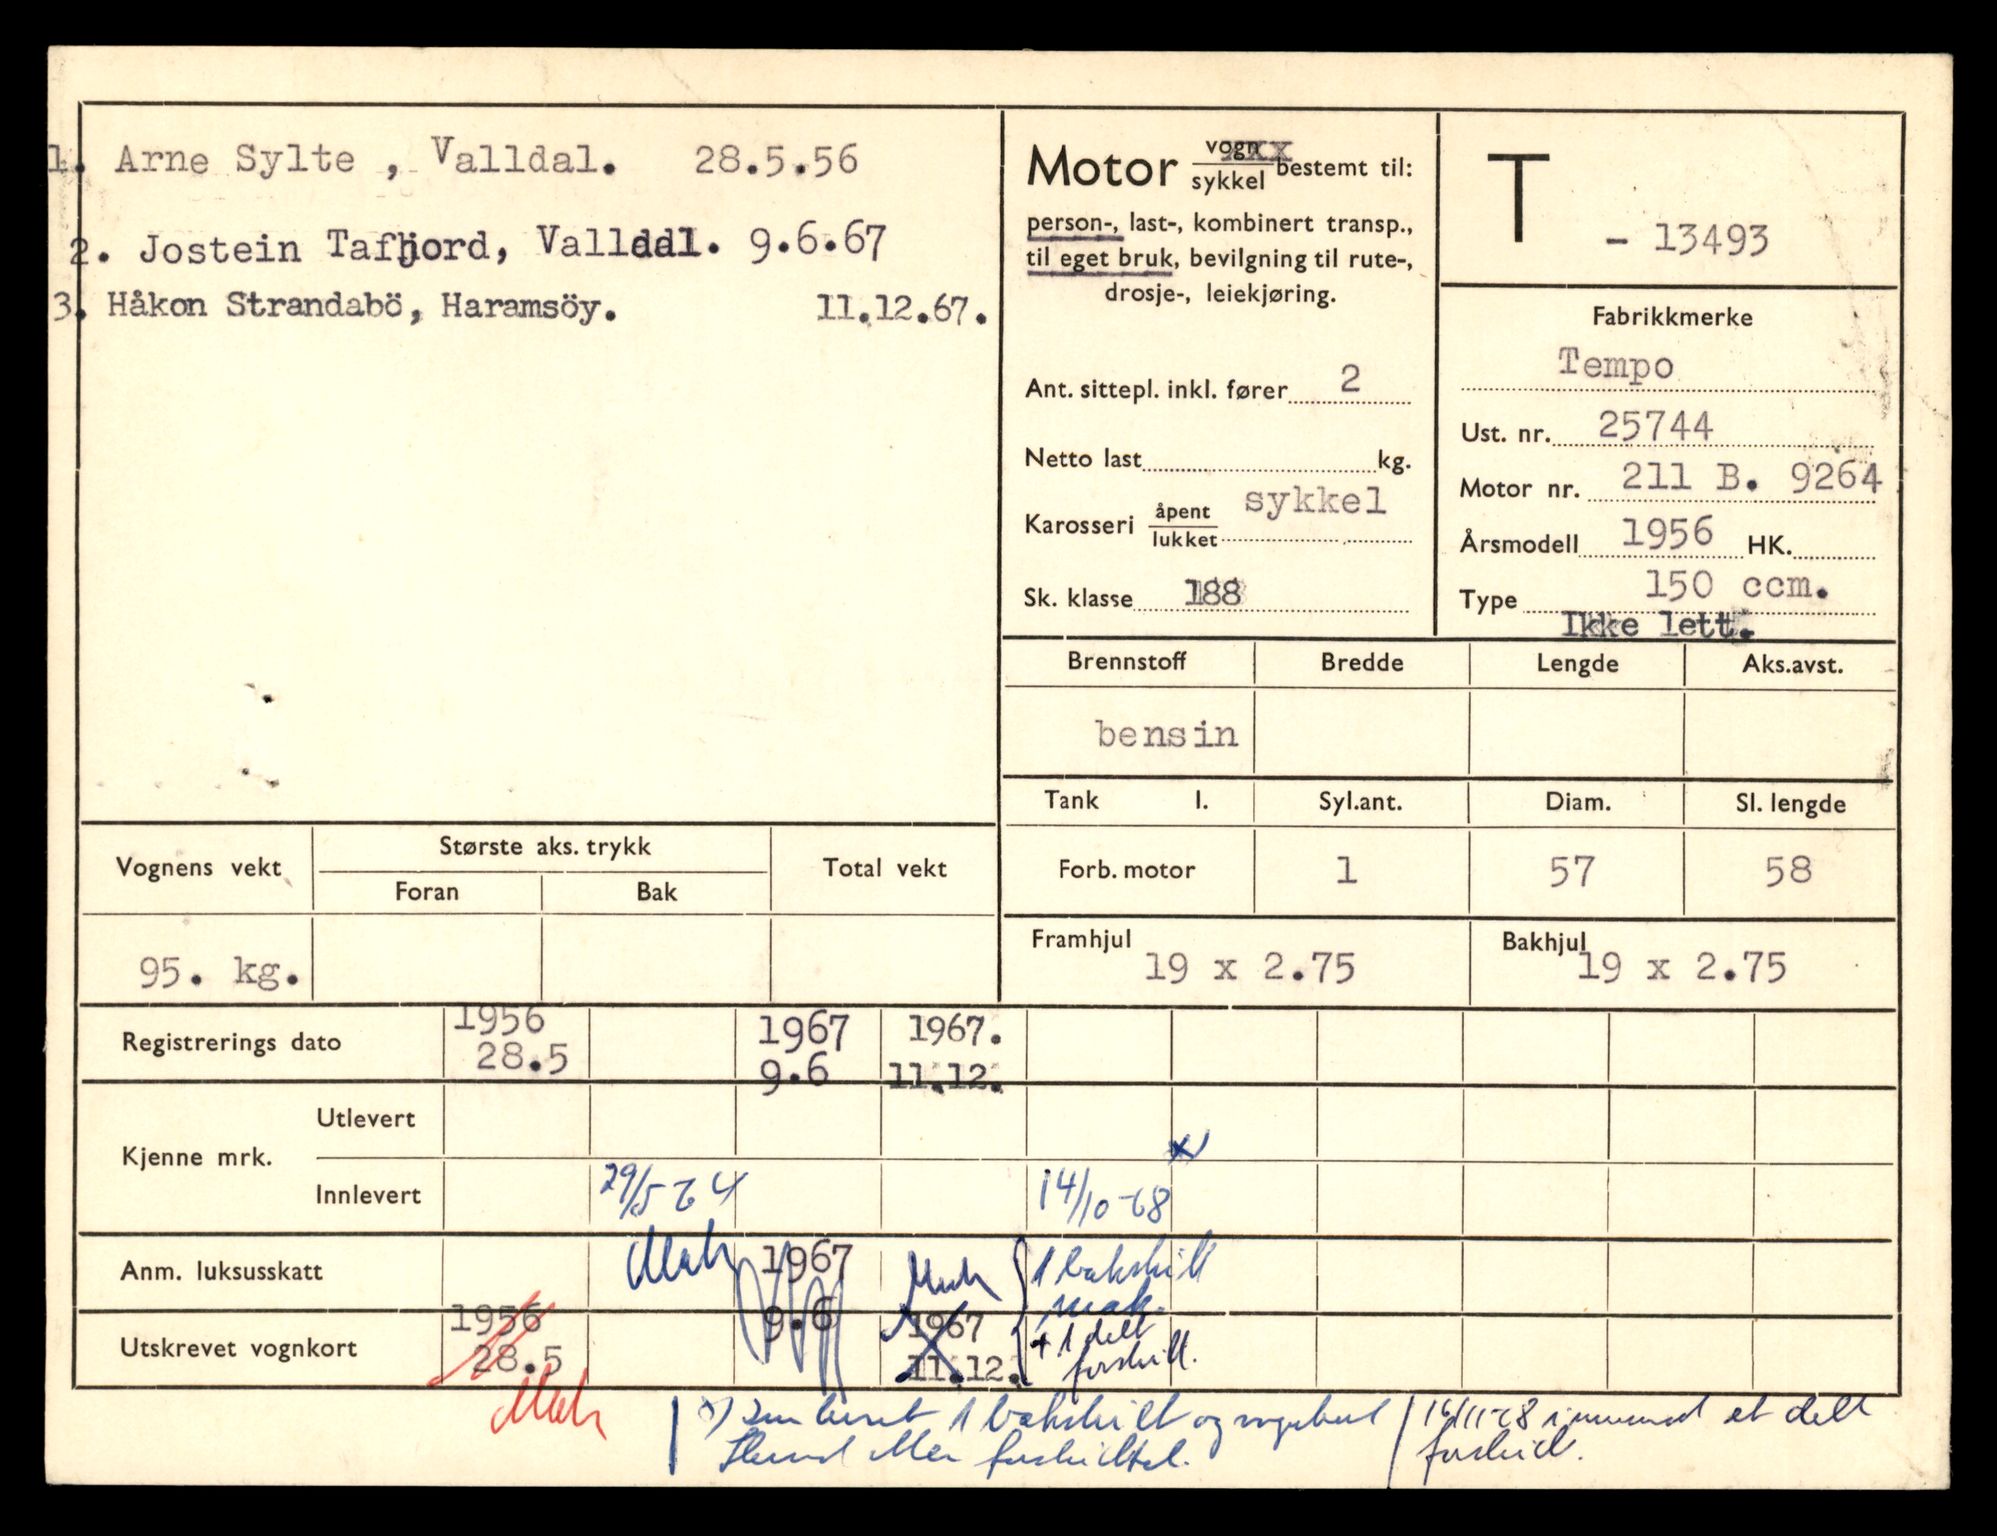 1. Arne Sylte , Valldal. 28.5.56
2. Jostein Tafjord, Valldal. 9.6.67
3. Håkon Strandabö, Haramsöy. 11.12.67.
Motor vogn xxx
sykkel bestemt til:
person-, last-, kombinert transp.,
til eget bruk, bevilgning til rute-,
drosje-, leiekjøring.
Ant. sittepl. inkl. fører 2
Netto last kg.
Karosseri åpent
lukket sykkel
Sk. klasse 188
T - 13493
Fabrikkmerke
Tempo
Ust. nr. 25744
Motor nr. 211 B. 9264
Årsmodell 1956 HK.
Type 150 ccm.
Ikke lett.
Brennstoff Bredde Lengde Aks.avst.
bensin
Tank l. Syl.ant. Diam. Sl. lengde
Forb. motor 1 57 58
Framhjul 19 x 2.75 Bakhjul 19 x 2.75
Vognens vekt Største aks. trykk Total vekt
Foran Bak
95. kg.
Registrerings dato 1956 1967 1967.
28.5 9.6 11.12.
Kjenne mrk. Utlevert
Innlevert 29/5-64 14/10-68 x
Anm. luksusskatt 1967 1 bakskilt
9.6 mak.
Utskrevet vognkort 1956 1967 + 1 delt
28.5 11.12. forskilt.
x) 1 bakskilt og vognkort 16/11-68 et delt
forskilt.